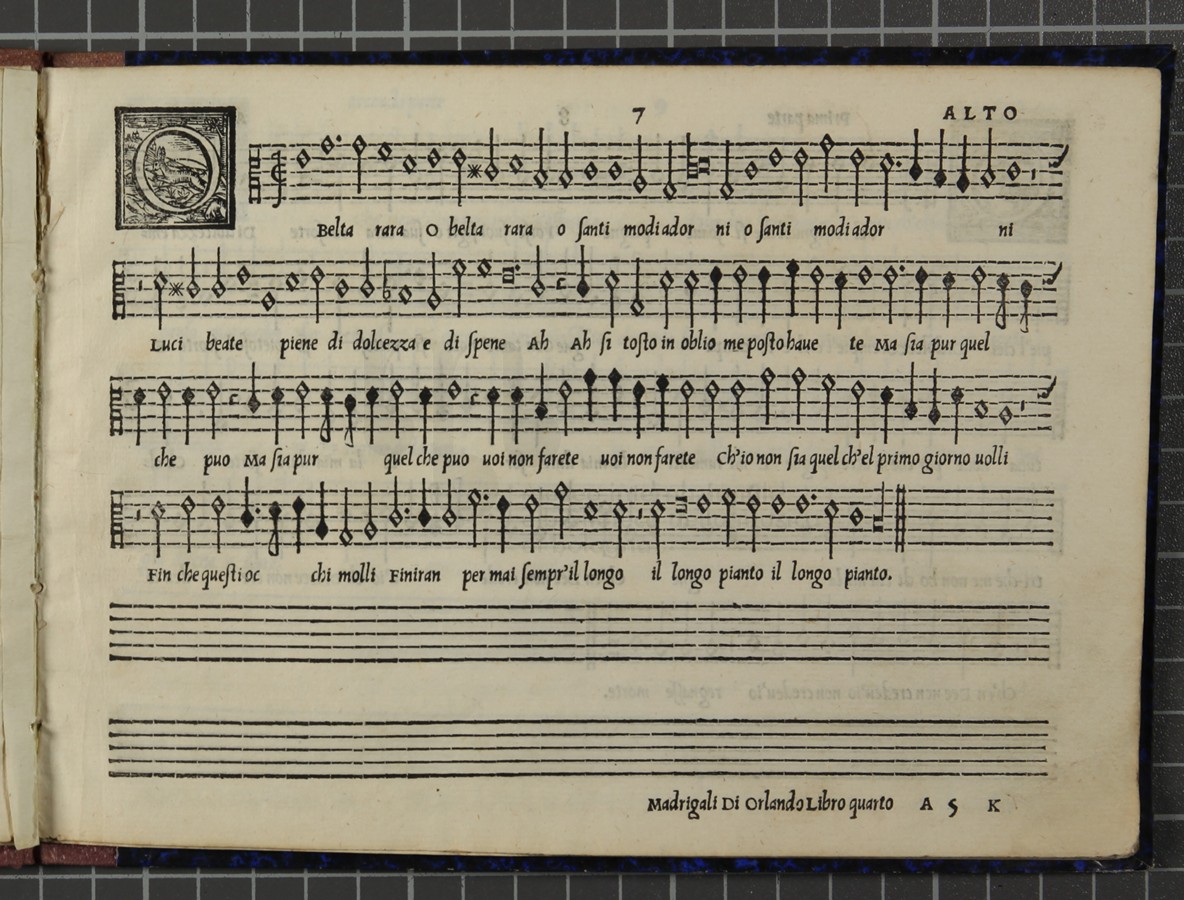 7 ALTO
O Belta rara O belta rara o ſanti modi ador ni o ſanti modi ador ni
Luci beate piene di dolcezza e di ſpene Ah Ah ſi toſto in oblio me poſto haue te Ma ſia pur quel
che puo Ma ſia pur quel che puo uoi non farete uoi non farete Ch'io non ſia quel ch'el primo giorno uolli
Fin che queſti oc chi molli Finiran per mai ſempr'il longo il longo pianto il longo pianto.
Madrigali Di Orlando Libro quarto A 5 K